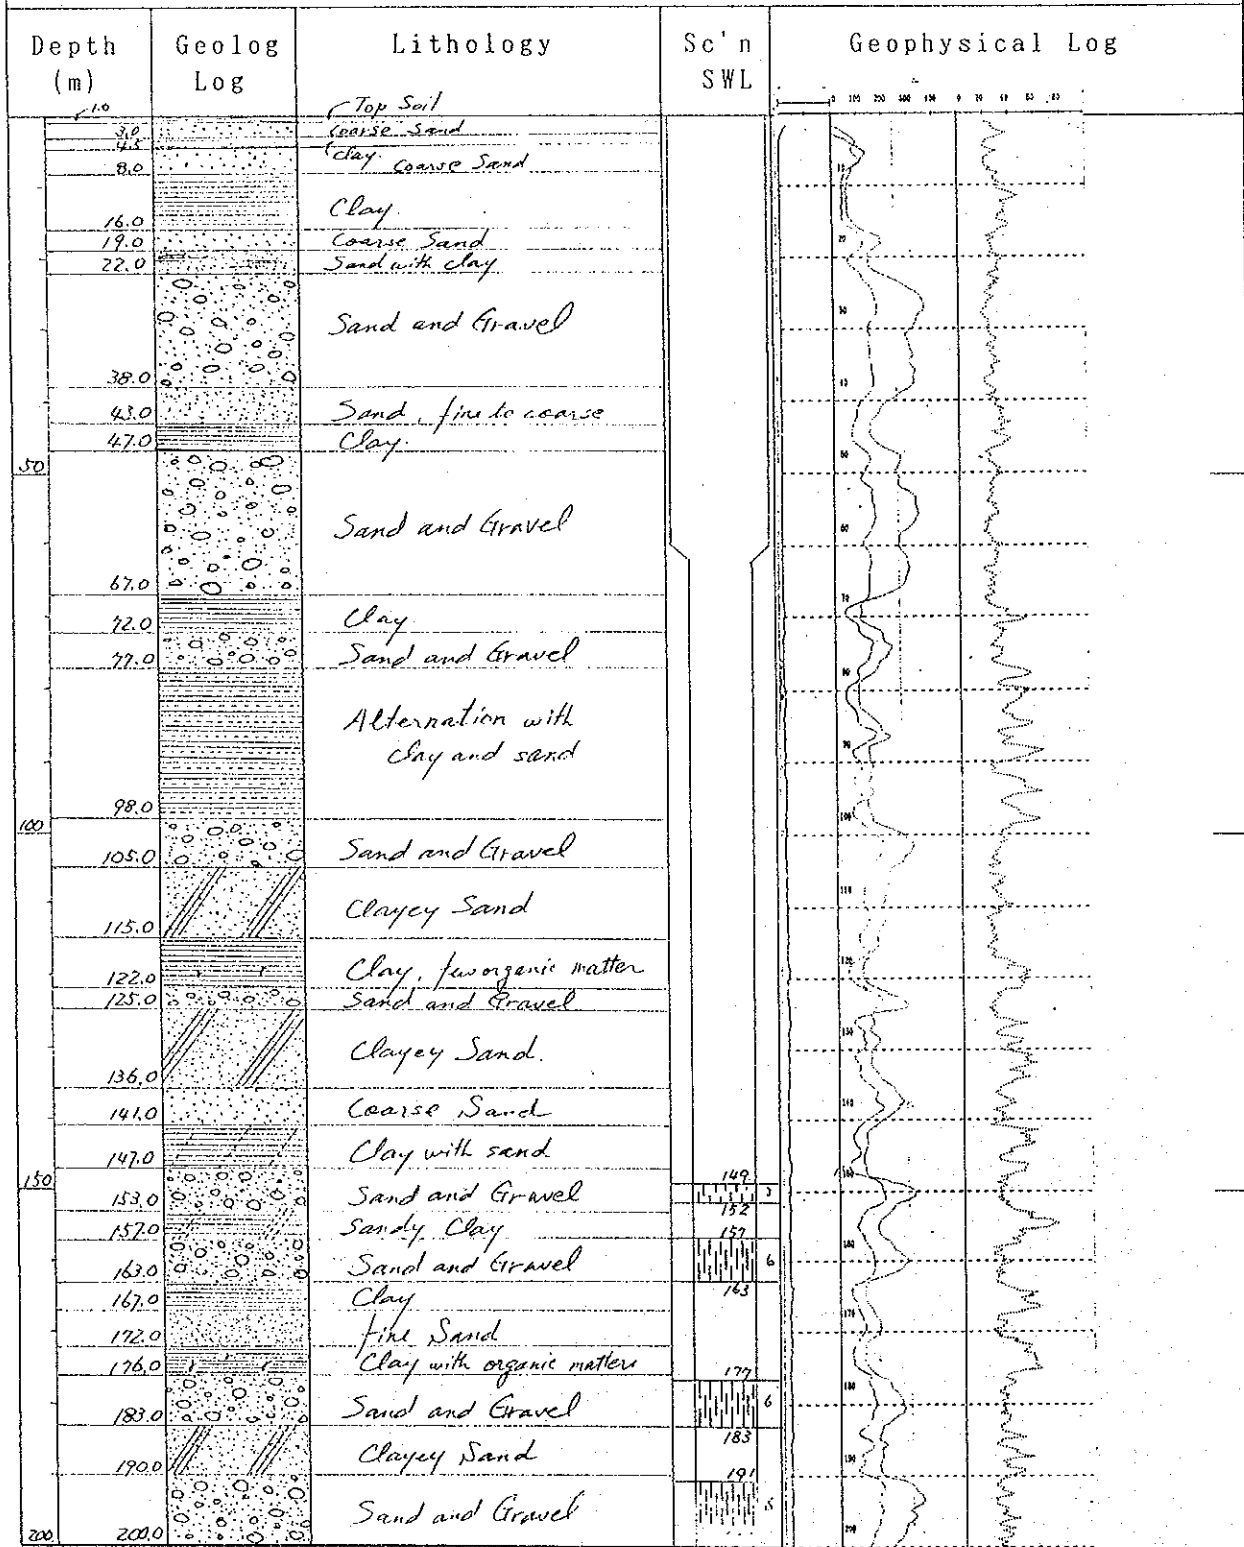 Depth (m)
Geolog Log
Lithology
Sc'n SWL
Geophysical Log
1.0 Top Soil
3.0 Coarse Sand
4.5 Clay
8.0 Coarse Sand
16.0 Clay
19.0 Coarse Sand
22.0 Sand with clay
Sand and Gravel
38.0
43.0 Sand, fine to coarse
47.0 Clay
50
Sand and Gravel
67.0
72.0 Clay
77.0 Sand and Gravel
Alternation with
clay and sand
98.0
100
105.0 Sand and Gravel
115.0 Clayey Sand
122.0 Clay, few organic matter
125.0 Sand and Gravel
136.0 Clayey Sand.
141.0 Coarse Sand
147.0 Clay with sand
149
150
153.0 Sand and Gravel 3
152
157.0 Sandy Clay 157
163.0 Sand and Gravel 6
163
167.0 Clay
172.0 fine Sand
176.0 Clay with organic matters
177
183.0 Sand and Gravel 6
183
190.0 Clayey Sand
191
Sand and Gravel 5
200 200.0